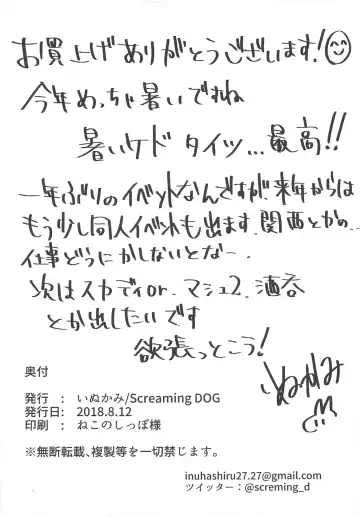 お買上げありがとうございます!
今年めっちゃ暑いですね
暑いケド タイツ...最高!!
一年ぶりのイベントなんですが、来年からは
もう少し同人イベントも出ます。関西とかの..
仕事どうにかしないとなー.
次はスカディor.マシュ2.酒呑
とか出したいです
欲張っとこう!
いぬかみ
奥付
発行 : いぬかみ/Screaming DOG
発行日: 2018.8.12
印刷 : ねこのしっぽ様
※無断転載、複製等を一切禁じます。
inuhashiru27.27@gmail.com
ツイッター:@screming_d